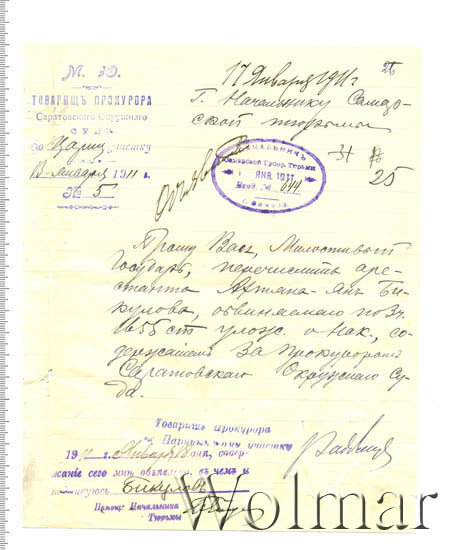 М. Ю.
ТОВАРИЩЪ ПРОКУРОРА
Саратовскаго Окружнаго
СУДА
по Цариц. участку
13 Января 1911 г.
№ 5
17 Января 1911 г
Г. Начальнику Самар-
ской тюрьмы
НАЧАЛЬНИКЪ
Самарской Губер. Тюрьмы
ЯНВ. 1911
Вход. № 644
г. Самара.
25
Объявить
Прошу Васъ, Милостивый
Государь, перечислить аре-
станта Би-
кулова, обвиняемаго по 3 ч.
1655 ст улож. о Нак., со-
держаніемъ за Прокуроромъ
Саратовскаго Окружнаго Су-
да.
Товарищъ Прокурора
Царицынскому участку
1911 г. Января дня, содер-
жаніе сего мнѣ объявлено, въ чемъ и
подписуюсь Бикуловъ
Помощ. Начальника
Тюрьмы
Wolmar